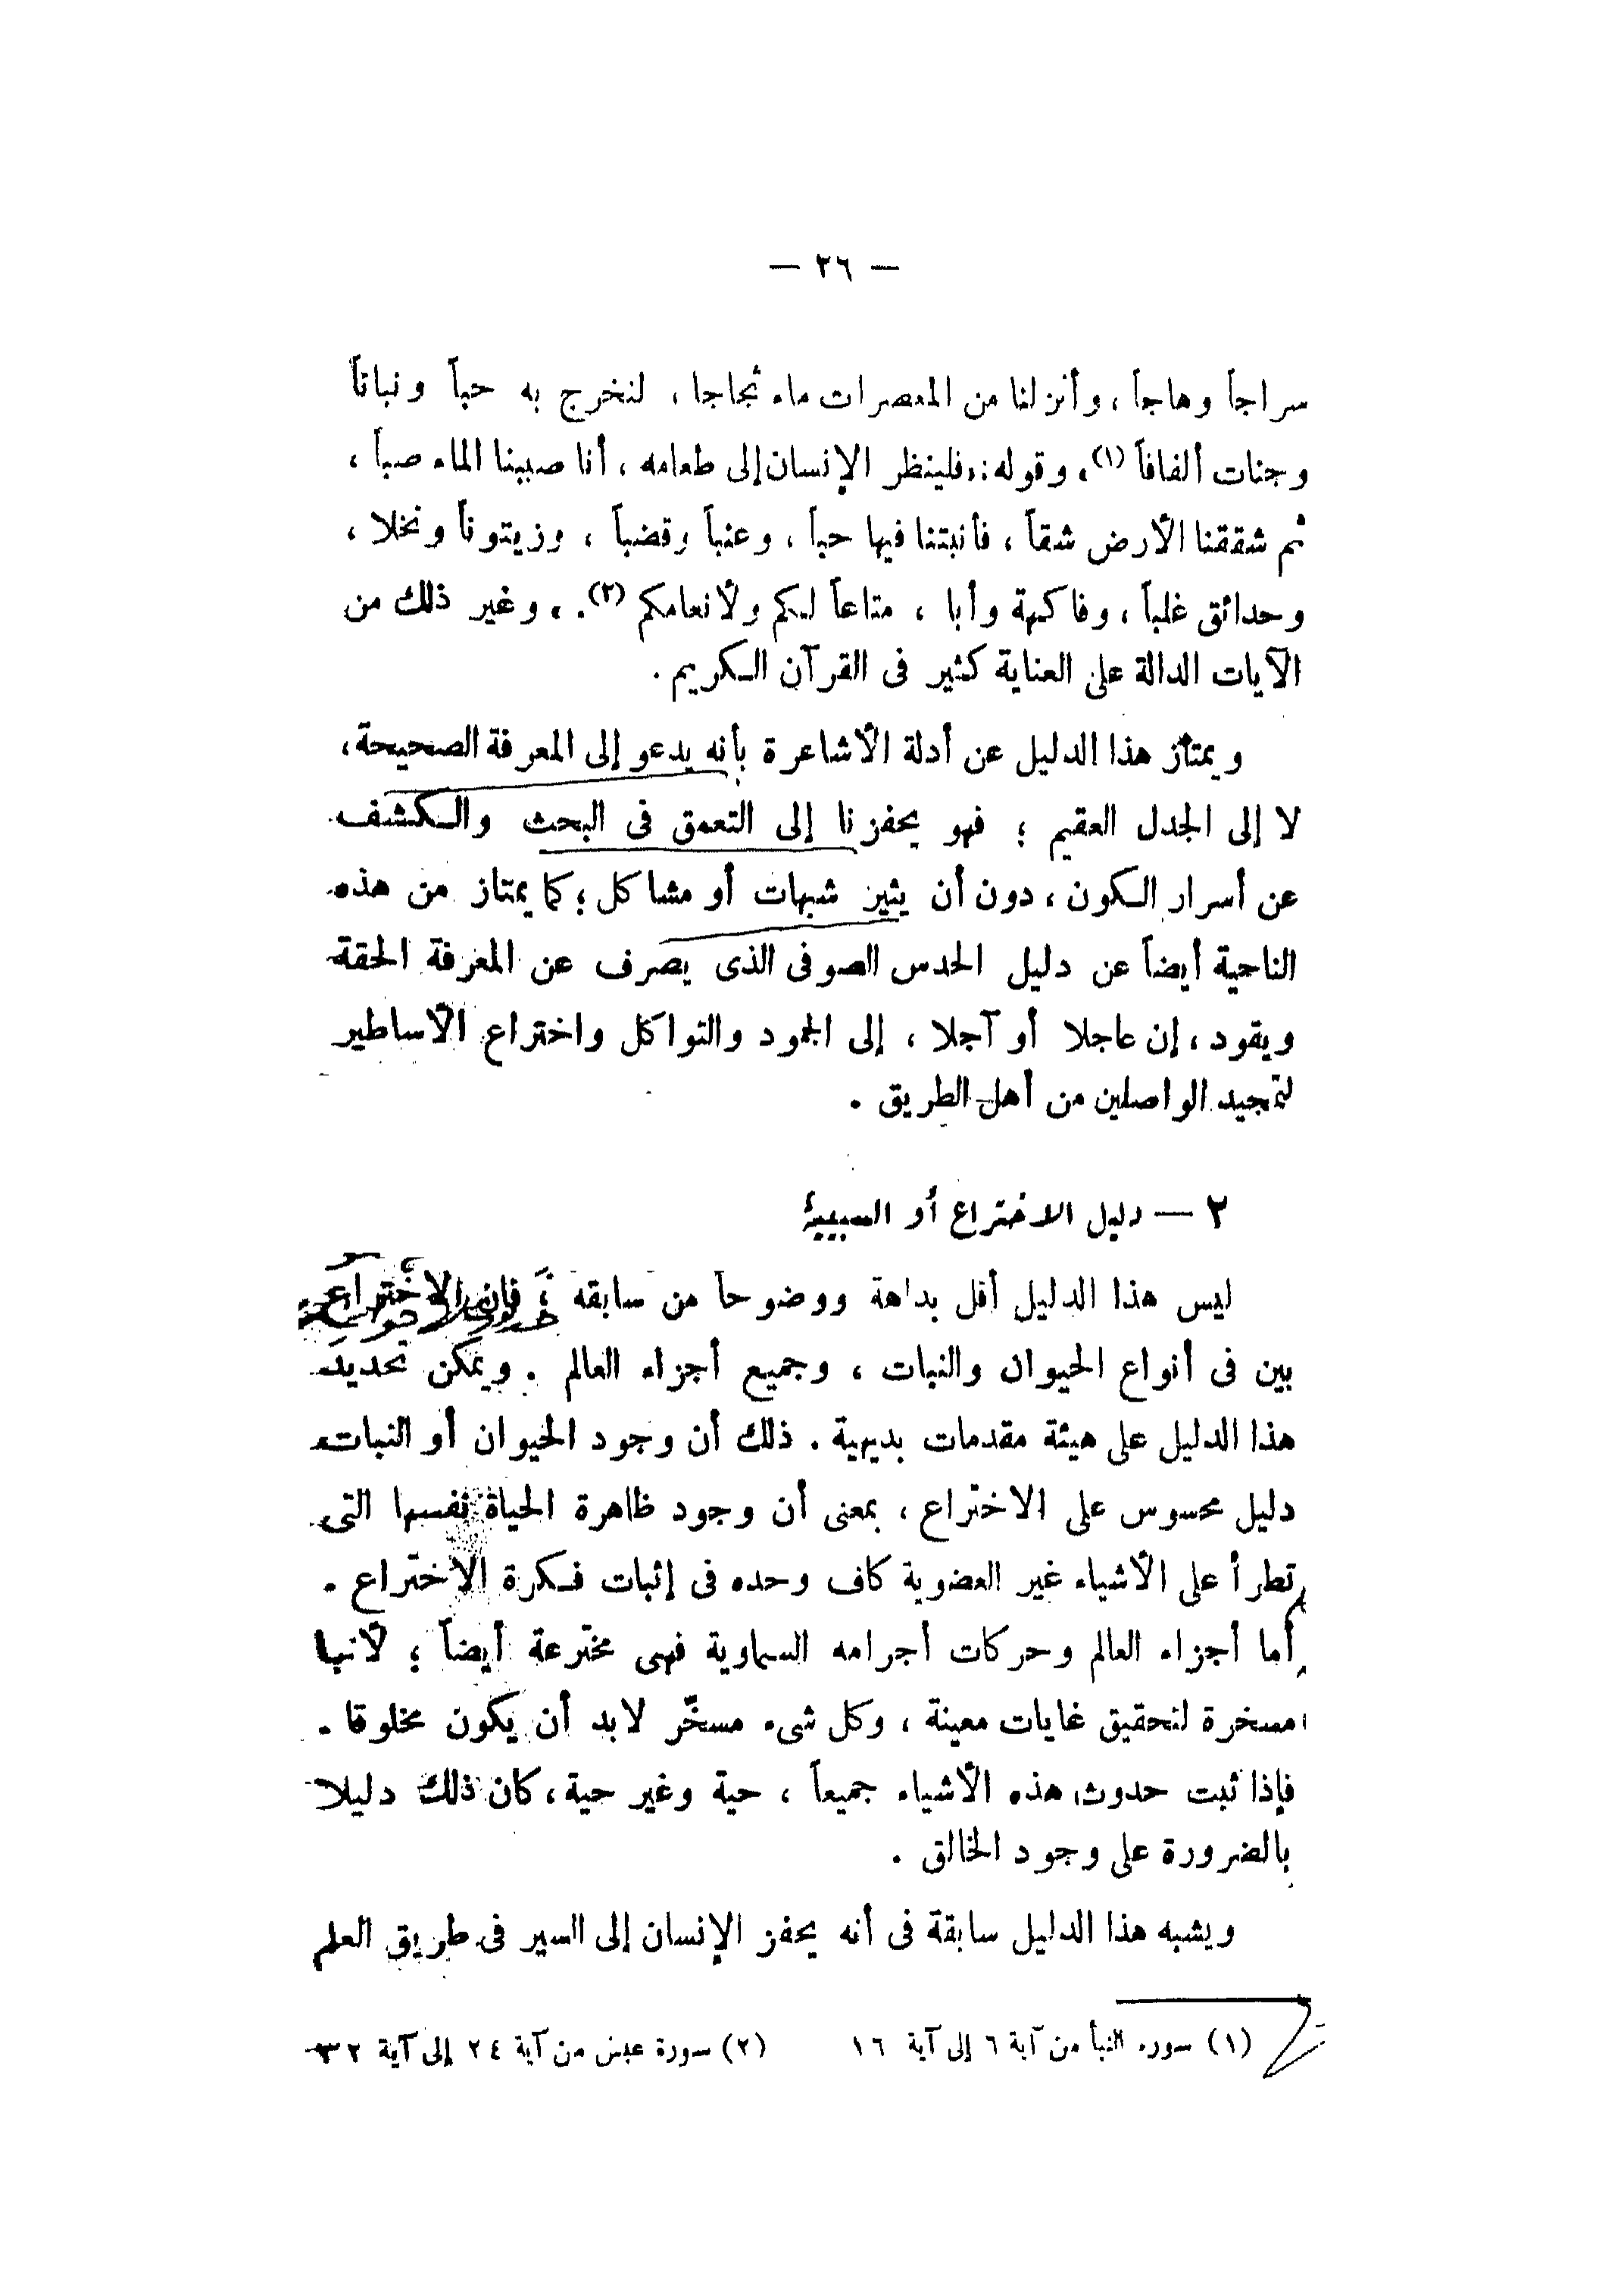 — ٢٦ —
سراجاً وهاجاً ، وأنزلنا من المعصرات ماء ثجاجا ، لنخرج به حباً ونباتاً
وجنات ألفافاً (١)، وقوله: «فلينظر الإنسان إلى طعامه ، أنا صببنا الماء صباً ،
ثم شققنا الأرض شقاً ، فأنبتنا فيها حباً ، وعنباً وقضباً ، وزيتوناً ونخلا ،
وحدائق غلباً ، وفاكهة وأبا ، متاعاً لكم ولأنعامكم (٢). » وغير ذلك من
الآيات الدالة على العناية كثير فى القرآن الكريم .
ويمتاز هذا الدليل عن أدلة الأشاعرة بأنه يدعو إلى المعرفة الصحيحة ،
لا إلى الجدل العقيم ؛ فهو يحفزنا إلى التعمق فى البحث والكشف
عن أسرار الكون ، دون أن يثير شبهات أو مشاكل ؛ كما يمتاز من هذه
الناحية أيضاً عن دليل الحدس الصوفى الذى يصرف عن المعرفة الحقة
ويقود ، إن عاجلا أو آجلا ، إلى الجمود والتواكل واختراع الأساطير
لتمجيد الواصلين من أهل الطريق .
٢ — دليل الاختراع أو السببية
ليس هذا الدليل أقل بداهة ووضوحاً من سابقه ؛ فإن الاختراع
بين فى أنواع الحيوان والنبات ، وجميع أجزاء العالم . ويمكن تحديد
هذا الدليل على هيئة مقدمات بديهية . ذلك أن وجود الحيوان أو النبات
دليل محسوس على الاختراع ، بمعنى أن وجود ظاهرة الحياة نفسها التى
تطرأ على الأشياء غير العضوية كاف وحده فى إثبات فكرة الاختراع .
أما أجزاء العالم وحركات أجرامه السماوية فهى مخترعة أيضاً ؛ لأنها
مسخرة لتحقيق غايات معينة ، وكل شىء مسخّر لابد أن يكون مخلوقا .
فإذا ثبت حدوث هذه الأشياء جميعاً ، حية وغير حية ، كان ذلك دليلا
بالضرورة على وجود الخالق .
ويشبه هذا الدليل سابقة فى أنه يحفز الإنسان إلى السير فى طريق العلم
(١) سورة النبأ من آية ٦ إلى آية ١٦ (٢) سورة عبس من آية ٢٤ إلى آية ٣٢